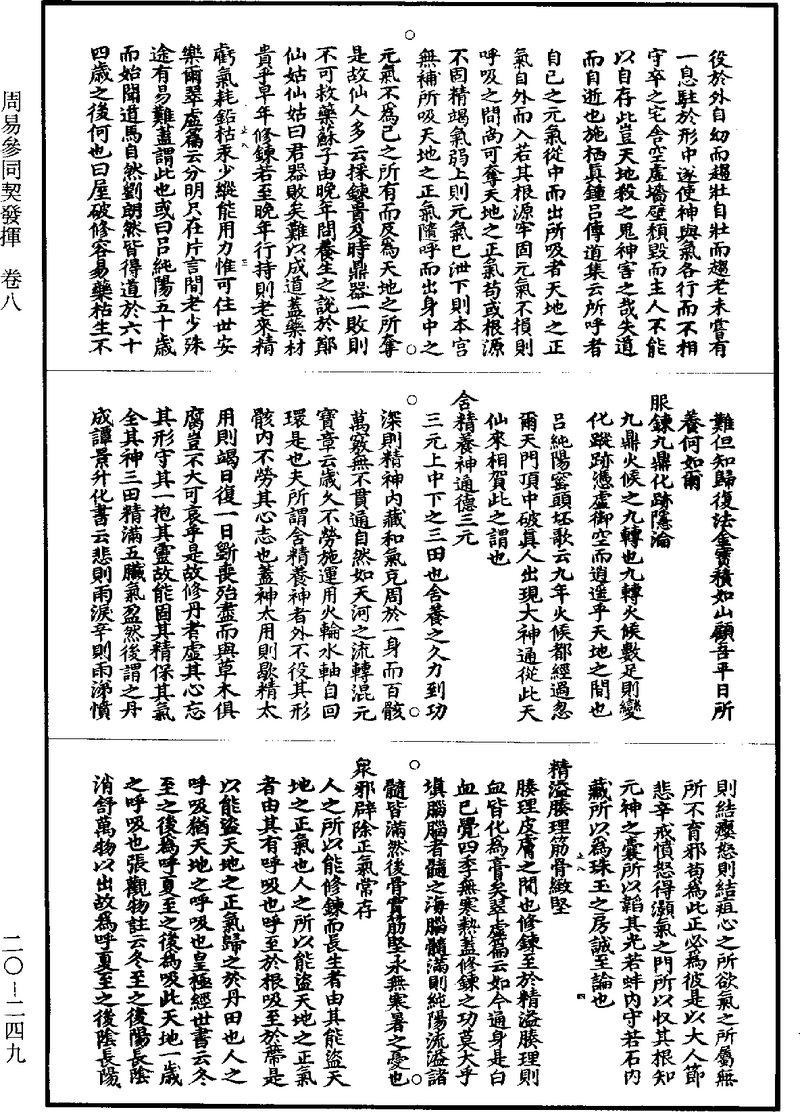 周易參同契發揮　卷八
二〇－二四九
役於外自幼而趨壯自壯而趨老未嘗有
一息駐於形中遂使神與氣各行而不相
守卒之宅舍空虛墻壁頹毀而主人不能
以自存此豈天地殺之鬼神害之哉失道
而自逝也施栖眞鍾呂傳道集云所呼者
自己之元氣從中而出所吸者天地之正
氣自外而入若其根源牢固元氣不損則
呼吸之間尚可奪天地之正氣苟或根源
不固精竭氣弱上則元氣已泄下則本宮
無補所吸天地之正氣隨呼而出身中之
元氣不爲己之所有而反爲天地之所奪
是故仙人多云採鍊貴及時鼎器一敗則
不可救藥蘇子由晚年問養生之說於鄭
仙姑仙姑曰君器敗矣難以成道蓋藥材
貴乎早年修鍊若至晚年行持則老來精
虧氣耗鉛枯汞少縱能用力惟可住世安
樂爾翠虛篇云分明只在片言間老少殊
途有易難蓋謂此也或曰呂純陽五十歲
而始聞道馬自然劉朗然皆得道於六十
四歲之後何也曰屋破修容易藥枯生不
難但知歸復法金寶積如山顧吾平日所
養何如爾
服鍊九鼎化跡隱淪
九鼎火候之九轉也九轉火候數足則變
化蹤跡憑虛御空而逍遙乎天地之間也
呂純陽窑頭坯歌云九年火候都經過忽
爾天門頂中破眞人出現大神通從此天
仙來相賀此之謂也
含精養神通德三元
三元上中下之三田也含養之久力到功
深則精神內藏和氣充周於一身而百骸
萬竅無不貫通自然如天河之流轉混元
寶章云歲久不勞施運用火輪水軸自回
環是也夫所謂含精養神者外不役其形
骸內不勞其心志也蓋神太用則歇精太
用則竭日復一日斲喪殆盡而與草木俱
腐豈不大可哀乎是故修丹者虛其心忘
其形守其一抱其靈故能固其精保其氣
全其神三田精滿五臟氣盈然後謂之丹
成譚景升化書云悲則雨淚辛則雨涕憤
則結癭怒則結疽心之所欲氣之所屬無
所不育邪苟爲此正必爲彼是以大人節
悲辛戒憤怒得灝氣之門所以收其根知
元神之囊所以韜其光若蚌內守若石內
藏所以爲珠玉之房誠至論也
精溢腠理筋骨緻堅
腠理皮膚之間也修鍊至於精溢腠理則
血皆化爲膏矣翠虛篇云如今通身是白
血已覺四季無寒熱蓋修鍊之功莫大乎
塡腦腦者髓之海腦髓滿則純陽流溢諸
髓皆滿然後骨實筋堅永無寒暑之憂也
衆邪辟除正氣常存
人之所以能修鍊而長生者由其能盜天
地之正氣也人之所以能盜天地之正氣
者由其有呼吸也呼至於根吸至於蔕是
以能盜天地之正氣歸之於丹田也人之
呼吸猶天地之呼吸也皇極經世書云冬
至之後爲呼夏至之後爲吸此天地一歲
之呼吸也張觀物註云冬至之後陽長陰
消舒萬物以出故爲呼夏至之後陰長陽